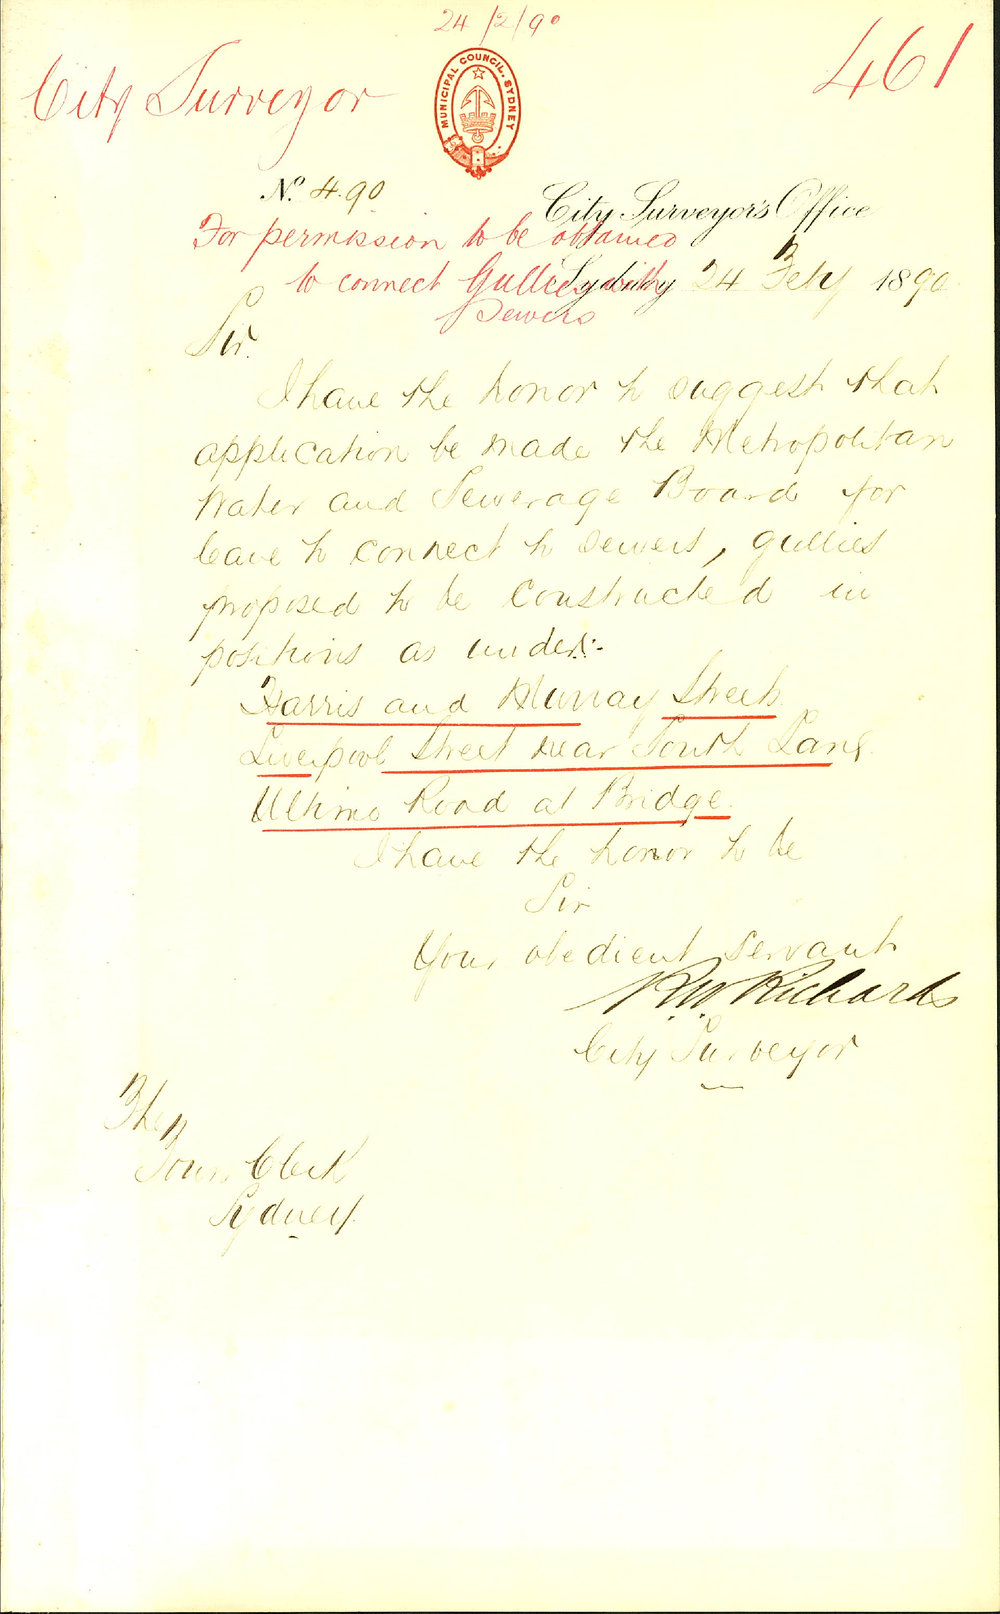 24/2/90
461
City Surveyor
MUNICIPAL COUNCIL. SYDNEY
No. 4.90
City Surveyor's Office
For permission to be obtained
to connect Gullies with
Sewers
Sydney 24 Feby 1890
Sir.
I have the honor to suggest that
application be made the Metropolitan
Water and Sewerage Board for
leave to connect to sewers, gullies
proposed to be constructed in
positions as under:-
Harris and Murray Streets.
Liverpool Street near South Lane.
Ultimo Road at Bridge.
I have the honor to be
Sir
Your obedient servant
R.W. Richards
City Surveyor
The
Town Clerk
Sydney.